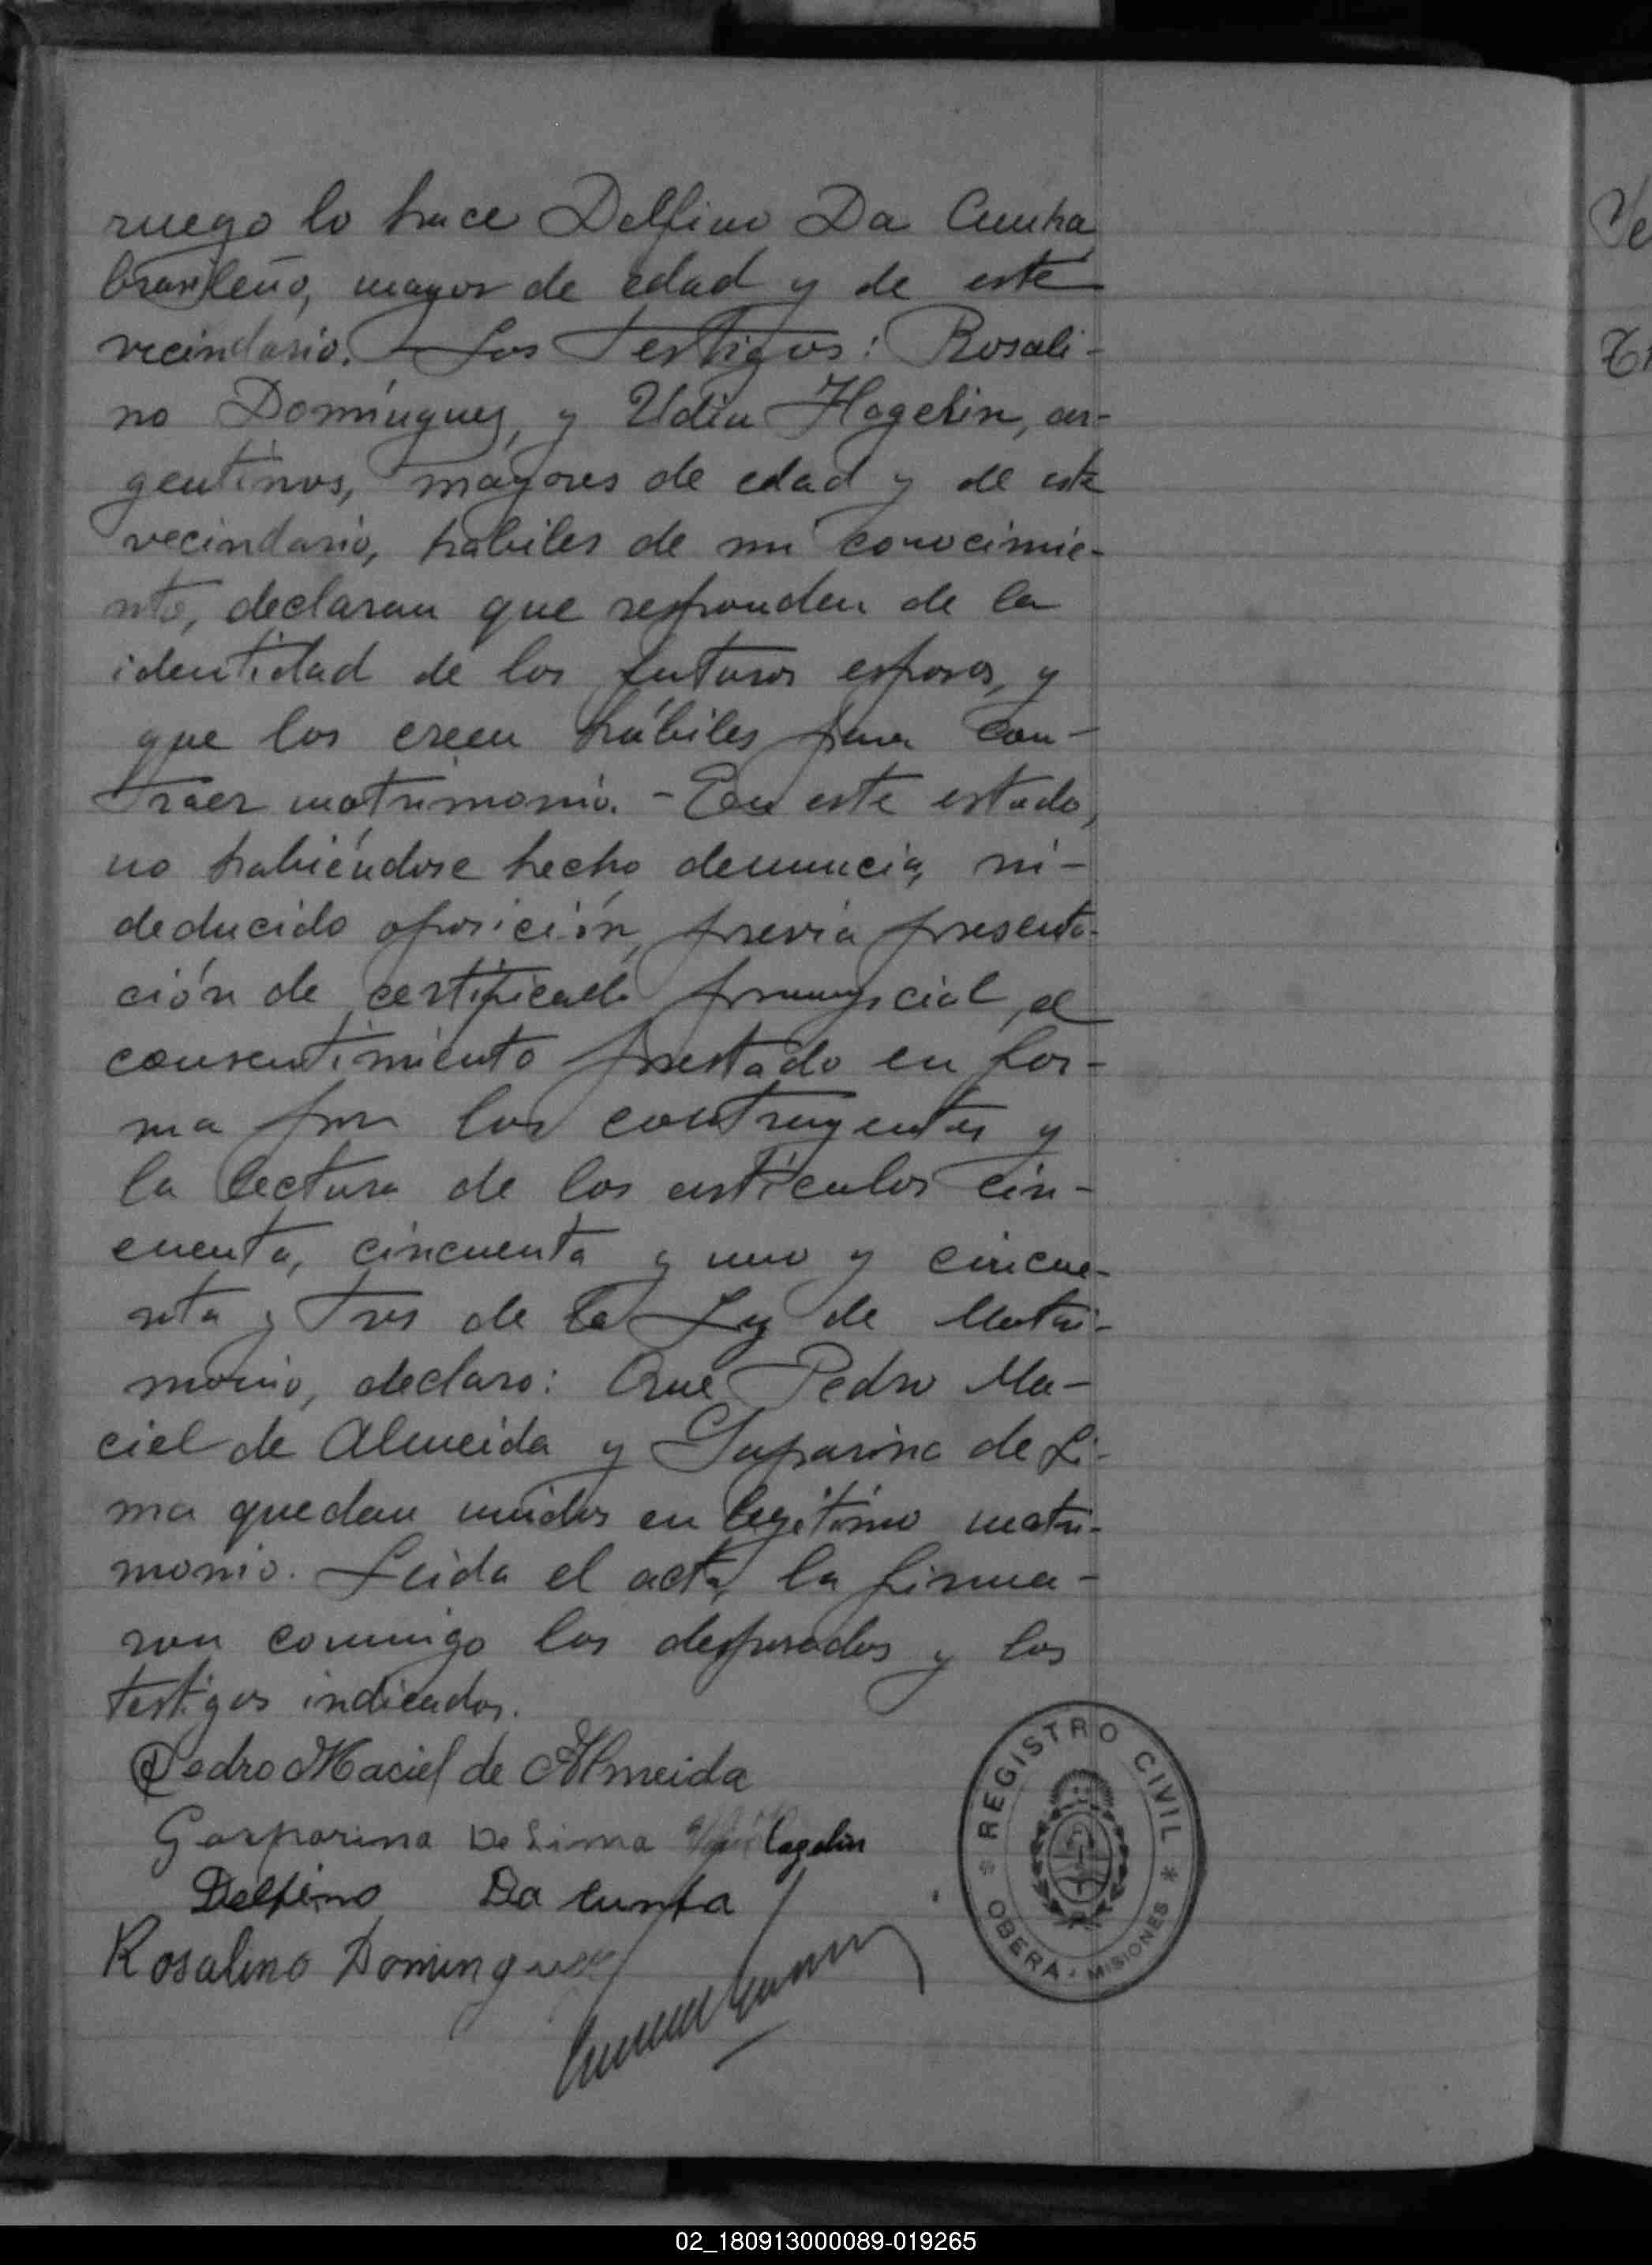 ruego lo hace Delfino Da Cunha
brasileño, mayor de edad y de este
vecindario. Los Testigos: Rosali-
no Domínguez, y Udin Hagelin, ar-
gentinos, mayores de edad y de este
vecindario, hábiles de mi conocimie-
nto, declaran que responden de la
identidad de los futuros esposos, y
que los creen hábiles para con-
traer matrimonio. - En este estado,
no habiéndose hecho denuncia, ni-
deducido oposición, previa presenta-
ción de certificado prenupcial, el
consentimiento prestado en for-
ma por los contrayentes y
la lectura de los artículos cin-
cuenta, cincuenta y uno y cincue-
nta y tres de la Ley de Matri-
monio, declaro: Que Pedro Ma-
ciel de Almeida y Gasparina de Li-
ma quedan unidos en legítimo matri-
monio. Leida el acta, la firma-
ron conmigo los desposados y los
testigos indicados.
Pedro Maciel de Almeida
Gasparina De Lima
Delfino Da Cunha
Rosalino Dominguez
REGISTRO CIVIL
OBERA - MISIONES
02_180913000089-019265